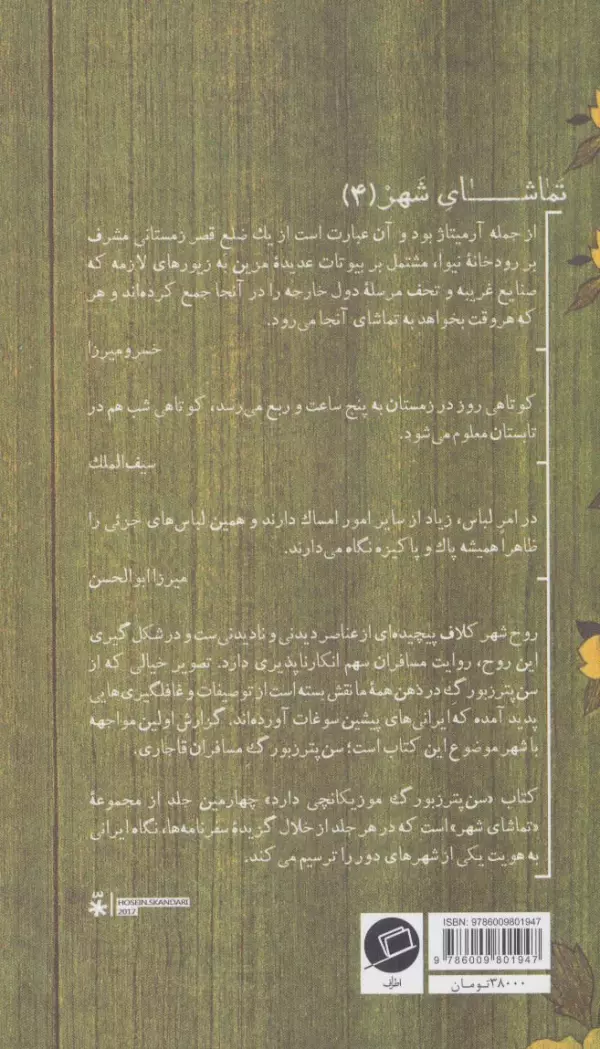 تماشای شهر (۴)
از جمله آرمیتاژ بود و آن عبارت است از یك ضلع قصر زمستانی مشرف
بر رودخانهٔ نیوا، مشتمل بر بیوتات عدیدهٔ مزین به زیورهای لازمه که
صنایع غریبه و تحف مرسلهٔ دول خارجه را در آنجا جمع کرده‌اند و هر
که هر وقت بخواهد به تماشای آنجا می‌رود.
خسرو میرزا
کوتاهی روز در زمستان به پنج ساعت و ربع می‌رسد، کوتاهی شب هم در
تابستان معلوم می‌شود.
سیف‌الملك
در امر لباس، زیاد از سایر امور امساك دارند و همین لباس‌های جزئی را
ظاهراً همیشه پاك و پاکیزه نگاه می‌دارند.
میرزا ابوالحسن
روح شهر کلاف پیچیده‌ای از عناصر دیدنی و نادیدنی‌ست و در شکل‌گیری
این روح، روایت مسافران سهم انکارناپذیری دارد. تصویر خیالی که از
سن‌پترزبورگ در ذهن همهٔ ما نقش بسته است از توصیفات و غافلگیری‌هایی
پدید آمده که ایرانی‌های پیشین سوغات آورده‌اند. گزارش اولین مواجهه
با شهر موضوع این کتاب است؛ سن‌پترزبورگِ مسافران قاجاری.
کتاب «سن‌پترزبورگ موزیکانچی دارد» چهارمین جلد از مجموعهٔ
«تماشای شهر» است که در هر جلد از خلال گزیدهٔ سفرنامه‌ها، نگاه ایرانی
به هویت یکی از شهرهای دور را ترسیم می‌کند.
HOSEIN.SKANDARI
2017
ISBN: 9786009801947
9 786009 801947
۳۸۰۰۰تومان
اطراف